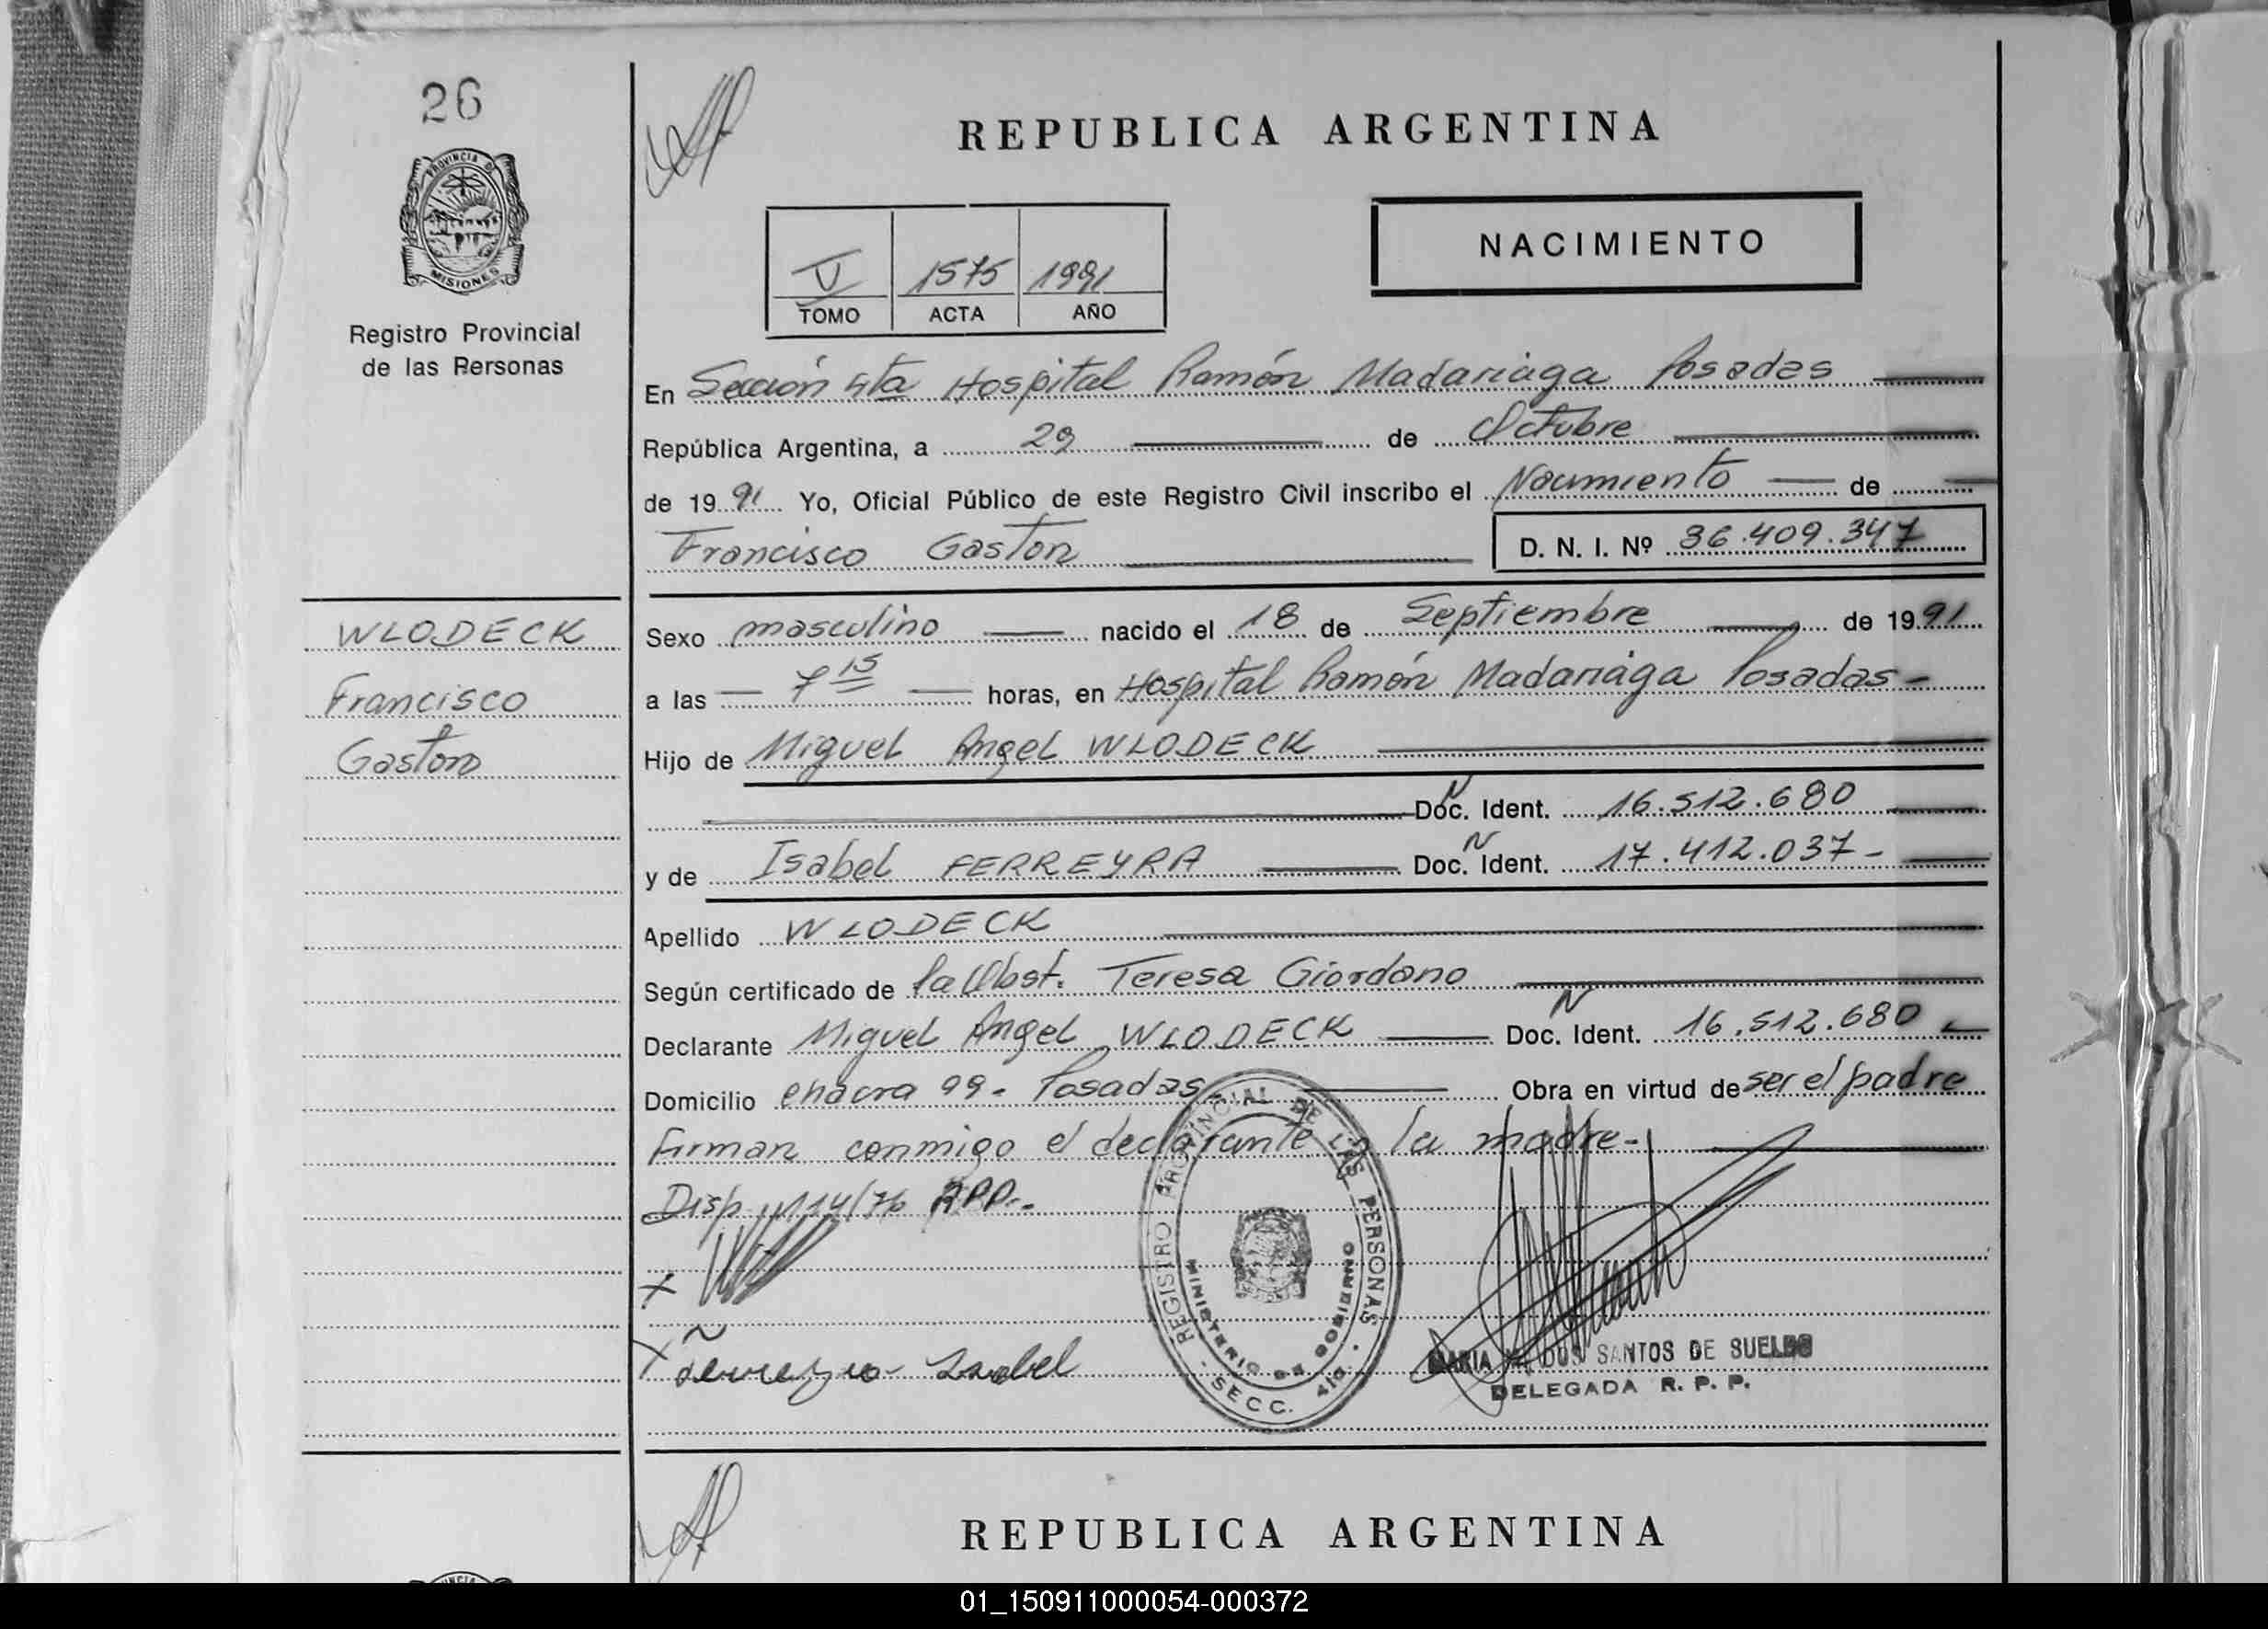 26
PROVINCIA DE
MISIONES
Registro Provincial
de las Personas
REPUBLICA ARGENTINA
NACIMIENTO
V 1575 1991
TOMO ACTA AÑO
En Sección 4ta Hospital Ramón Madariaga Posadas
República Argentina, a 29 de Octubre
de 1991 Yo, Oficial Público de este Registro Civil inscribo el Nacimiento de
Francisco Gaston D. N. I. Nº 36.409.347
WLODECK
Francisco
Gaston
Sexo masculino nacido el 18 de Septiembre de 1991
a las 7 15 horas, en Hospital Ramón Madariaga Posadas-
Hijo de Miguel Angel WLODECK
Doc. Ident. N 16.512.680
y de Isabel FERREYRA Doc. Ident. N 17.412.037-
Apellido WLODECK
Según certificado de la Obst. Teresa Giordano
Declarante Miguel Angel WLODECK Doc. Ident. N 16.512.680
Domicilio chacra 99- Posadas Obra en virtud de ser el padre
Firman conmigo el declarante y la madre-
Disp 114/76 RPP.-
x
x Ferreyra Isabel
REGISTRO PROVINCIAL DE LAS PERSONAS
MINISTERIO DE GOBIERNO
SECC. 4ta.
MARIA DOS SANTOS DE SUELDO
DELEGADA R. P. P.
REPUBLICA ARGENTINA
01_150911000054-000372